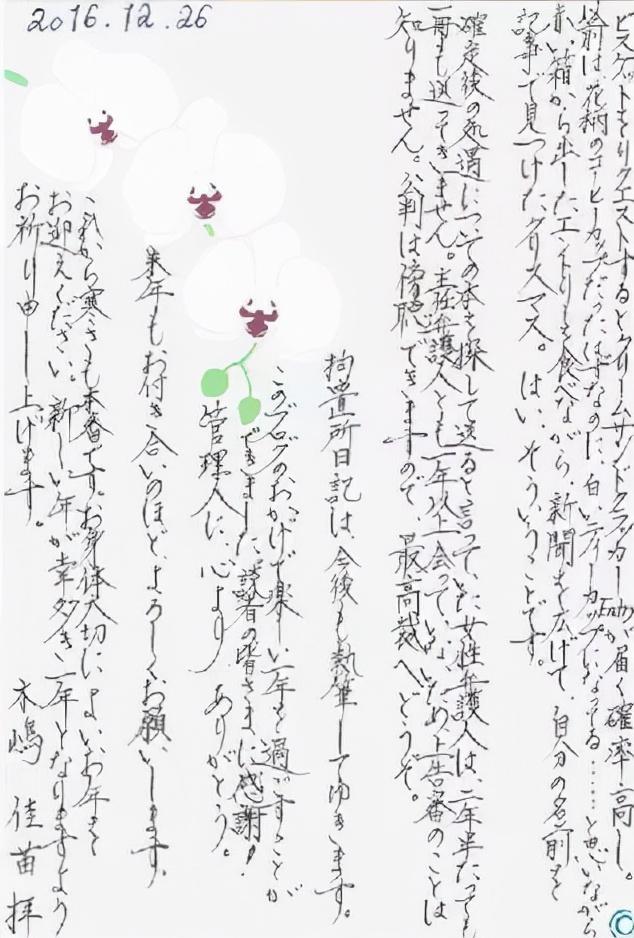 2016.12.26
ビスケットをリクエストするとクリームサンドクラッカー Entryが届く確率高し。
以前は花柄のコーヒーカップだったはずなのに、白いティーカップになってる……と思いながら
赤い箱から出したエントリーを食べながら、新聞を広げて、自分の名前を
記事で見つけたクリスマス。はい、そういうことです。
確定後の処遇についての本を探して送ると言っていた女性弁護人は、二年半たっても
一冊も送ってきません。主任弁護人とも一年以上会っていないため、上告審のことは
知りません。公判は傍聴できますので、最高裁へどうぞ。
拘置所日記は、今後も執筆してゆきます。
このブログのおかげで楽しい一年を過ごすことが
できました。読者の皆さまに感謝！
管理人に、心より ありがとう。
来年もお付き合いのほど、よろしくお願いします。
これから寒さも本番です。お身体大切に、よいお年を
お迎えください。新しい年が幸多き一年となりますよう
お祈り申し上げます。
木嶋 佳苗 拝
©